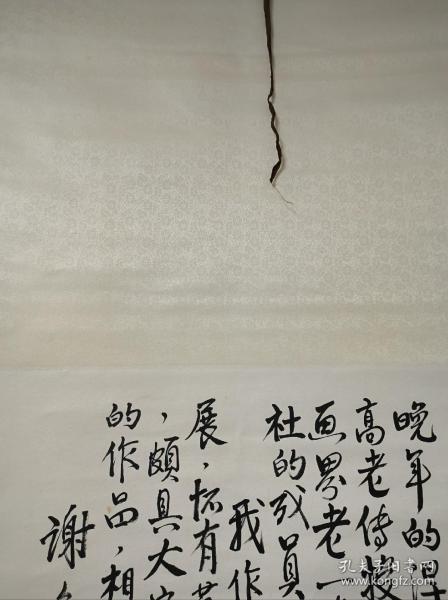 晚年的得
高老传授
画界老一
社的成员
我作
展，怀有
，颇具大
的作品，相
谢
孔夫子旧书网
kongfz.com